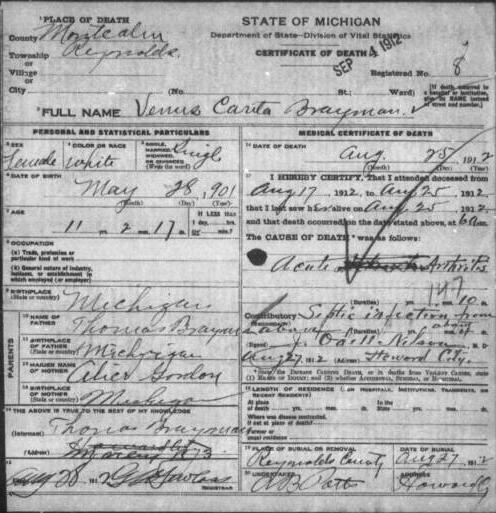 PLACE OF DEATH
STATE OF MICHIGAN
County Montcalm
Department of State—Division of Vital Statistics
Township Reynolds
CERTIFICATE OF DEATH
or
SEP 4 1912
Village
Registered No. 8
or
City (No. St.; Ward)
[If death occurred in a hospital or institution, give its NAME instead of street and number.]
FULL NAME Venus Carita Brayman
PERSONAL AND STATISTICAL PARTICULARS
SEX Female
COLOR OR RACE White
SINGLE, MARRIED, WIDOWED, OR DIVORCED (Write the word) Singl
DATE OF BIRTH
May 28, 1901
(Month) (Day) (Year)
AGE
11 yrs. 2 mos. 17 ds.
IF LESS than 1 day, hrs. or min.?
OCCUPATION
(a) Trade, profession or particular kind of work
(b) General nature of industry, business, or establishment in which employed (or employer)
BIRTHPLACE (State or country) Michigan
PARENTS
10 NAME OF FATHER Thomas Brayman
11 BIRTHPLACE OF FATHER (State or country) Michigan
12 MAIDEN NAME OF MOTHER Alice Gordon
13 BIRTHPLACE OF MOTHER (State or country) Michiga
14 THE ABOVE IS TRUE TO THE BEST OF MY KNOWLEDGE
(Informant) Thomas Brayman
(Address)
15
Aug 28 1912
REGISTRAR
MEDICAL CERTIFICATE OF DEATH
16 DATE OF DEATH
Aug. 25 1912
(Month) (Day) (Year)
17 I HEREBY CERTIFY, That I attended deceased from
Aug 17 1912, to Aug 25 1912
that I last saw her alive on Aug 25 1912
and that death occurred on the date stated above, at
The CAUSE OF DEATH was as follows:
Acute Arthritis
(Duration) yrs. mos. 10 ds.
Contributory Septic infection from
(Secondary)
(Duration)
(Signed) Nilson
Aug 27, 1912 (Address) Howard City
State the DISEASE CAUSING DEATH, or in deaths from VIOLENT CAUSES, state (1) MEANS OF INJURY; and (2) whether ACCIDENTAL, SUICIDAL, or HOMICIDAL.
18 LENGTH OF RESIDENCE (FOR HOSPITALS, INSTITUTIONS, TRANSIENTS, OR RECENT RESIDENTS)
At place of death yrs. mos. ds. In the State yrs. mos. ds.
Where was disease contracted, if not at place of death?
Former or usual residence
19 PLACE OF BURIAL OR REMOVAL
Reynolds County
DATE OF BURIAL
Aug 27, 1912
20 UNDERTAKER
ADDRESS